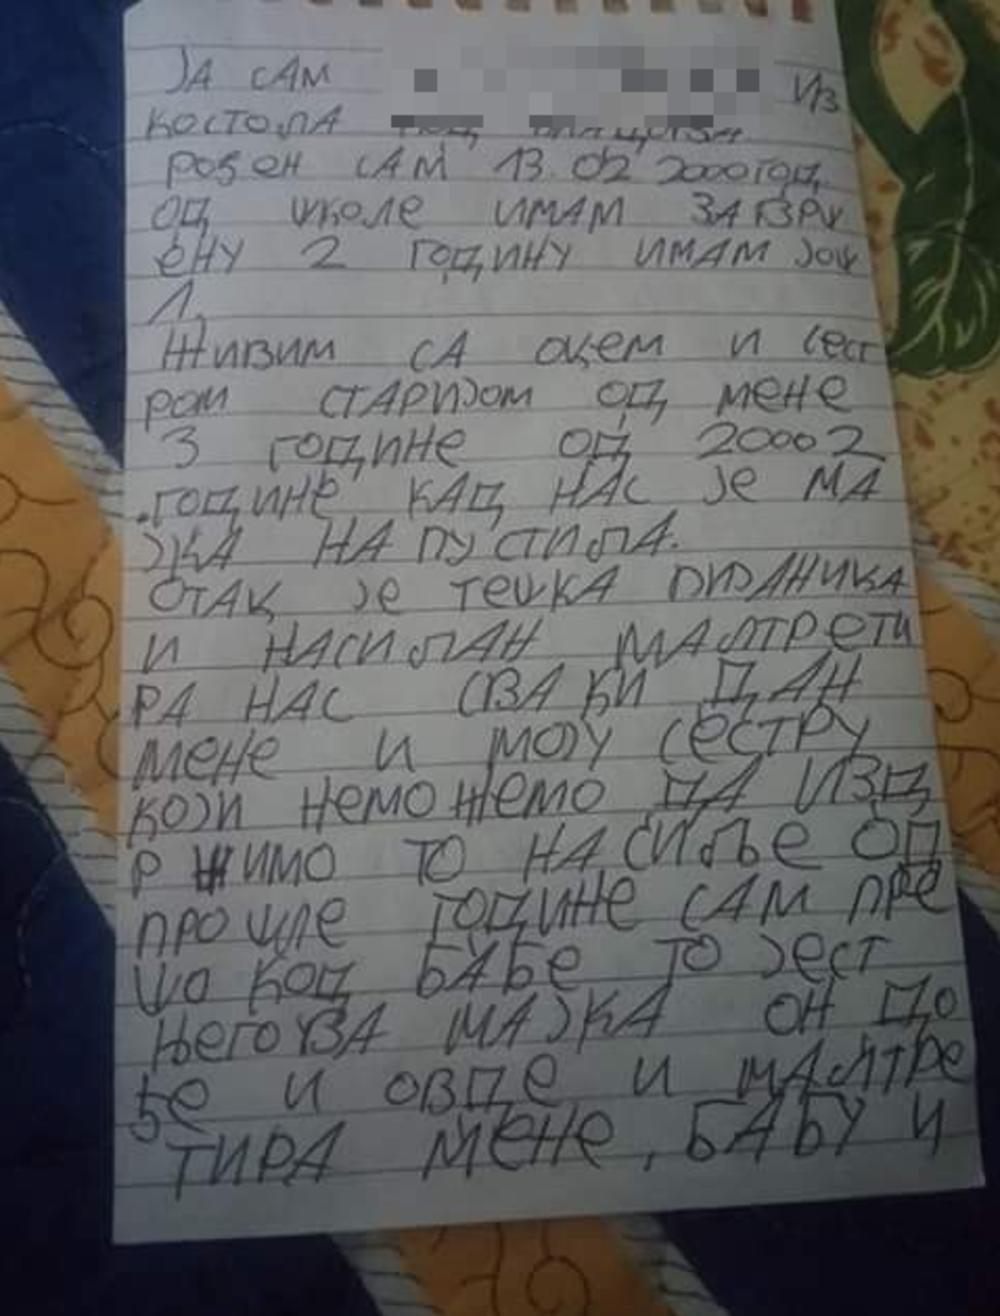 ЈА САМ ИЗ
КОСТОЛА
РОЂЕН САМ 13.02 2000 ГОД,
ОД ШКОЛЕ ИМАМ ЗАВРШ
ЕНУ 2 ГОДИНУ ИМАМ ЈОШ
1.
ЖИВИМ СА ОЦЕМ И СЕСТ
РОМ СТАРИЈОМ ОД МЕНЕ
3 ГОДИНЕ ОД 20002
.ГОДИНЕ КАД НАС ЈЕ МА
ЈКА НАПУСТИЛА.
ОТАЦ ЈЕ ТЕШКА ПИЈАНИЦА
И НАСИЛАН МАЛТРЕТИ
РА НАС СВАКИ ДАН
МЕНЕ И МОЈУ СЕСТРУ
КОЈИ НЕМОЖЕМО ДА ИЗД
РЖИМО ТО НАСИЉЕ ОД
ПРОШЛЕ ГОДИНЕ САМ ПРЕ
ШО КОД БАБЕ ТО ЈЕСТ
ЊЕГОВА МАЈКА ОН ДО
ЂЕ И ОВДЕ И МАЛТРЕ
ТИРА МЕНЕ, БАБУ И